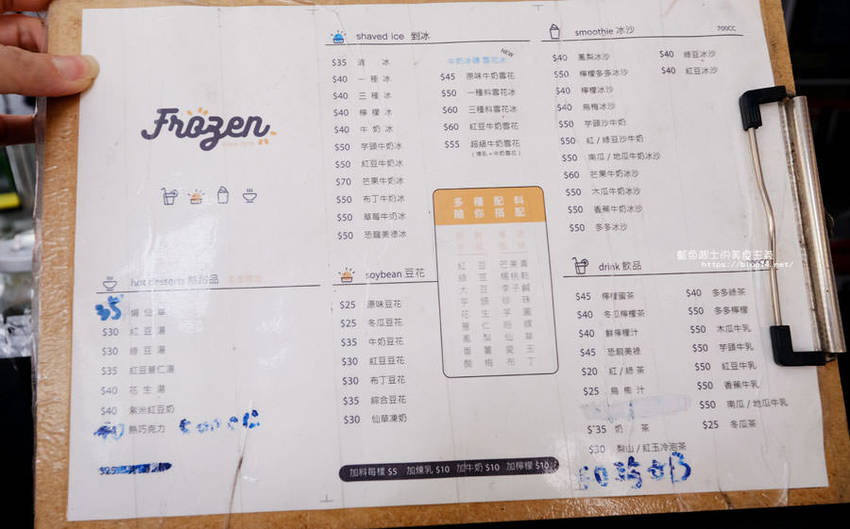 Frozen
shaved ice 剉冰
$35 清 冰
$40 一 種 冰
$40 三 種 冰
$40 檸 檬 冰
$40 牛 奶 冰
$50 芋頭牛奶冰
$50 紅豆牛奶冰
$70 芒果牛奶冰
$50 布丁牛奶冰
$50 草莓牛奶冰
$50 恐龍美祿冰
NEW
牛奶冰磚 雪花冰
$45 原味牛奶雪花
$50 一種料雪花冰
$60 三種料雪花冰
$60 紅豆牛奶雪花
$55 超級牛奶雪花
(煉乳+牛奶雪花)
smoothie 冰沙 700CC
$40 鳳梨冰沙
$50 檸檬多多冰沙
$40 檸檬冰沙
$40 烏梅冰沙
$50 芋頭沙牛奶
$50 紅 / 綠豆沙牛奶
$50 南瓜 / 地瓜牛奶冰沙
$60 芒果牛奶冰沙
$50 木瓜牛奶冰沙
$50 香蕉牛奶冰沙
$50 多多冰沙
$40 綠豆冰沙
$40 紅豆冰沙
多種配料
隨你搭配
紅豆 芒果薏
芋頭 珍珠
花生 芋圓
薏仁 粉粿
鳳梨 仙草
番薯 愛玉
酸梅 布丁
hot desserts 熱甜品
35 燒 仙 草
$30 紅 豆 湯
$30 綠 豆 湯
$35 紅豆薏仁湯
$40 花 生 湯
$40 紫米紅豆奶
熱巧克力
soybean 豆花
$25 原味豆花
$25 冬瓜豆花
$35 牛奶豆花
$30 紅豆豆花
$30 布丁豆花
$35 綜合豆花
$30 仙草凍奶
drink 飲品
$45 檸檬蜜茶
$40 冬瓜檸檬茶
$40 鮮檸檬汁
$45 恐龍美祿
$20 紅 / 綠茶
$25 烏 梅 汁
$35 奶 茶
$30 梨山 / 紅玉冷泡茶
$40 多多綠茶
$50 多多檸檬
$50 木瓜牛乳
$50 芋頭牛乳
$50 紅豆牛乳
$50 香蕉牛乳
$50 南瓜 / 地瓜牛乳
$25 冬瓜茶
加料每樣 $5 加煉乳 $10 加牛奶 $10 加檸檬 $10